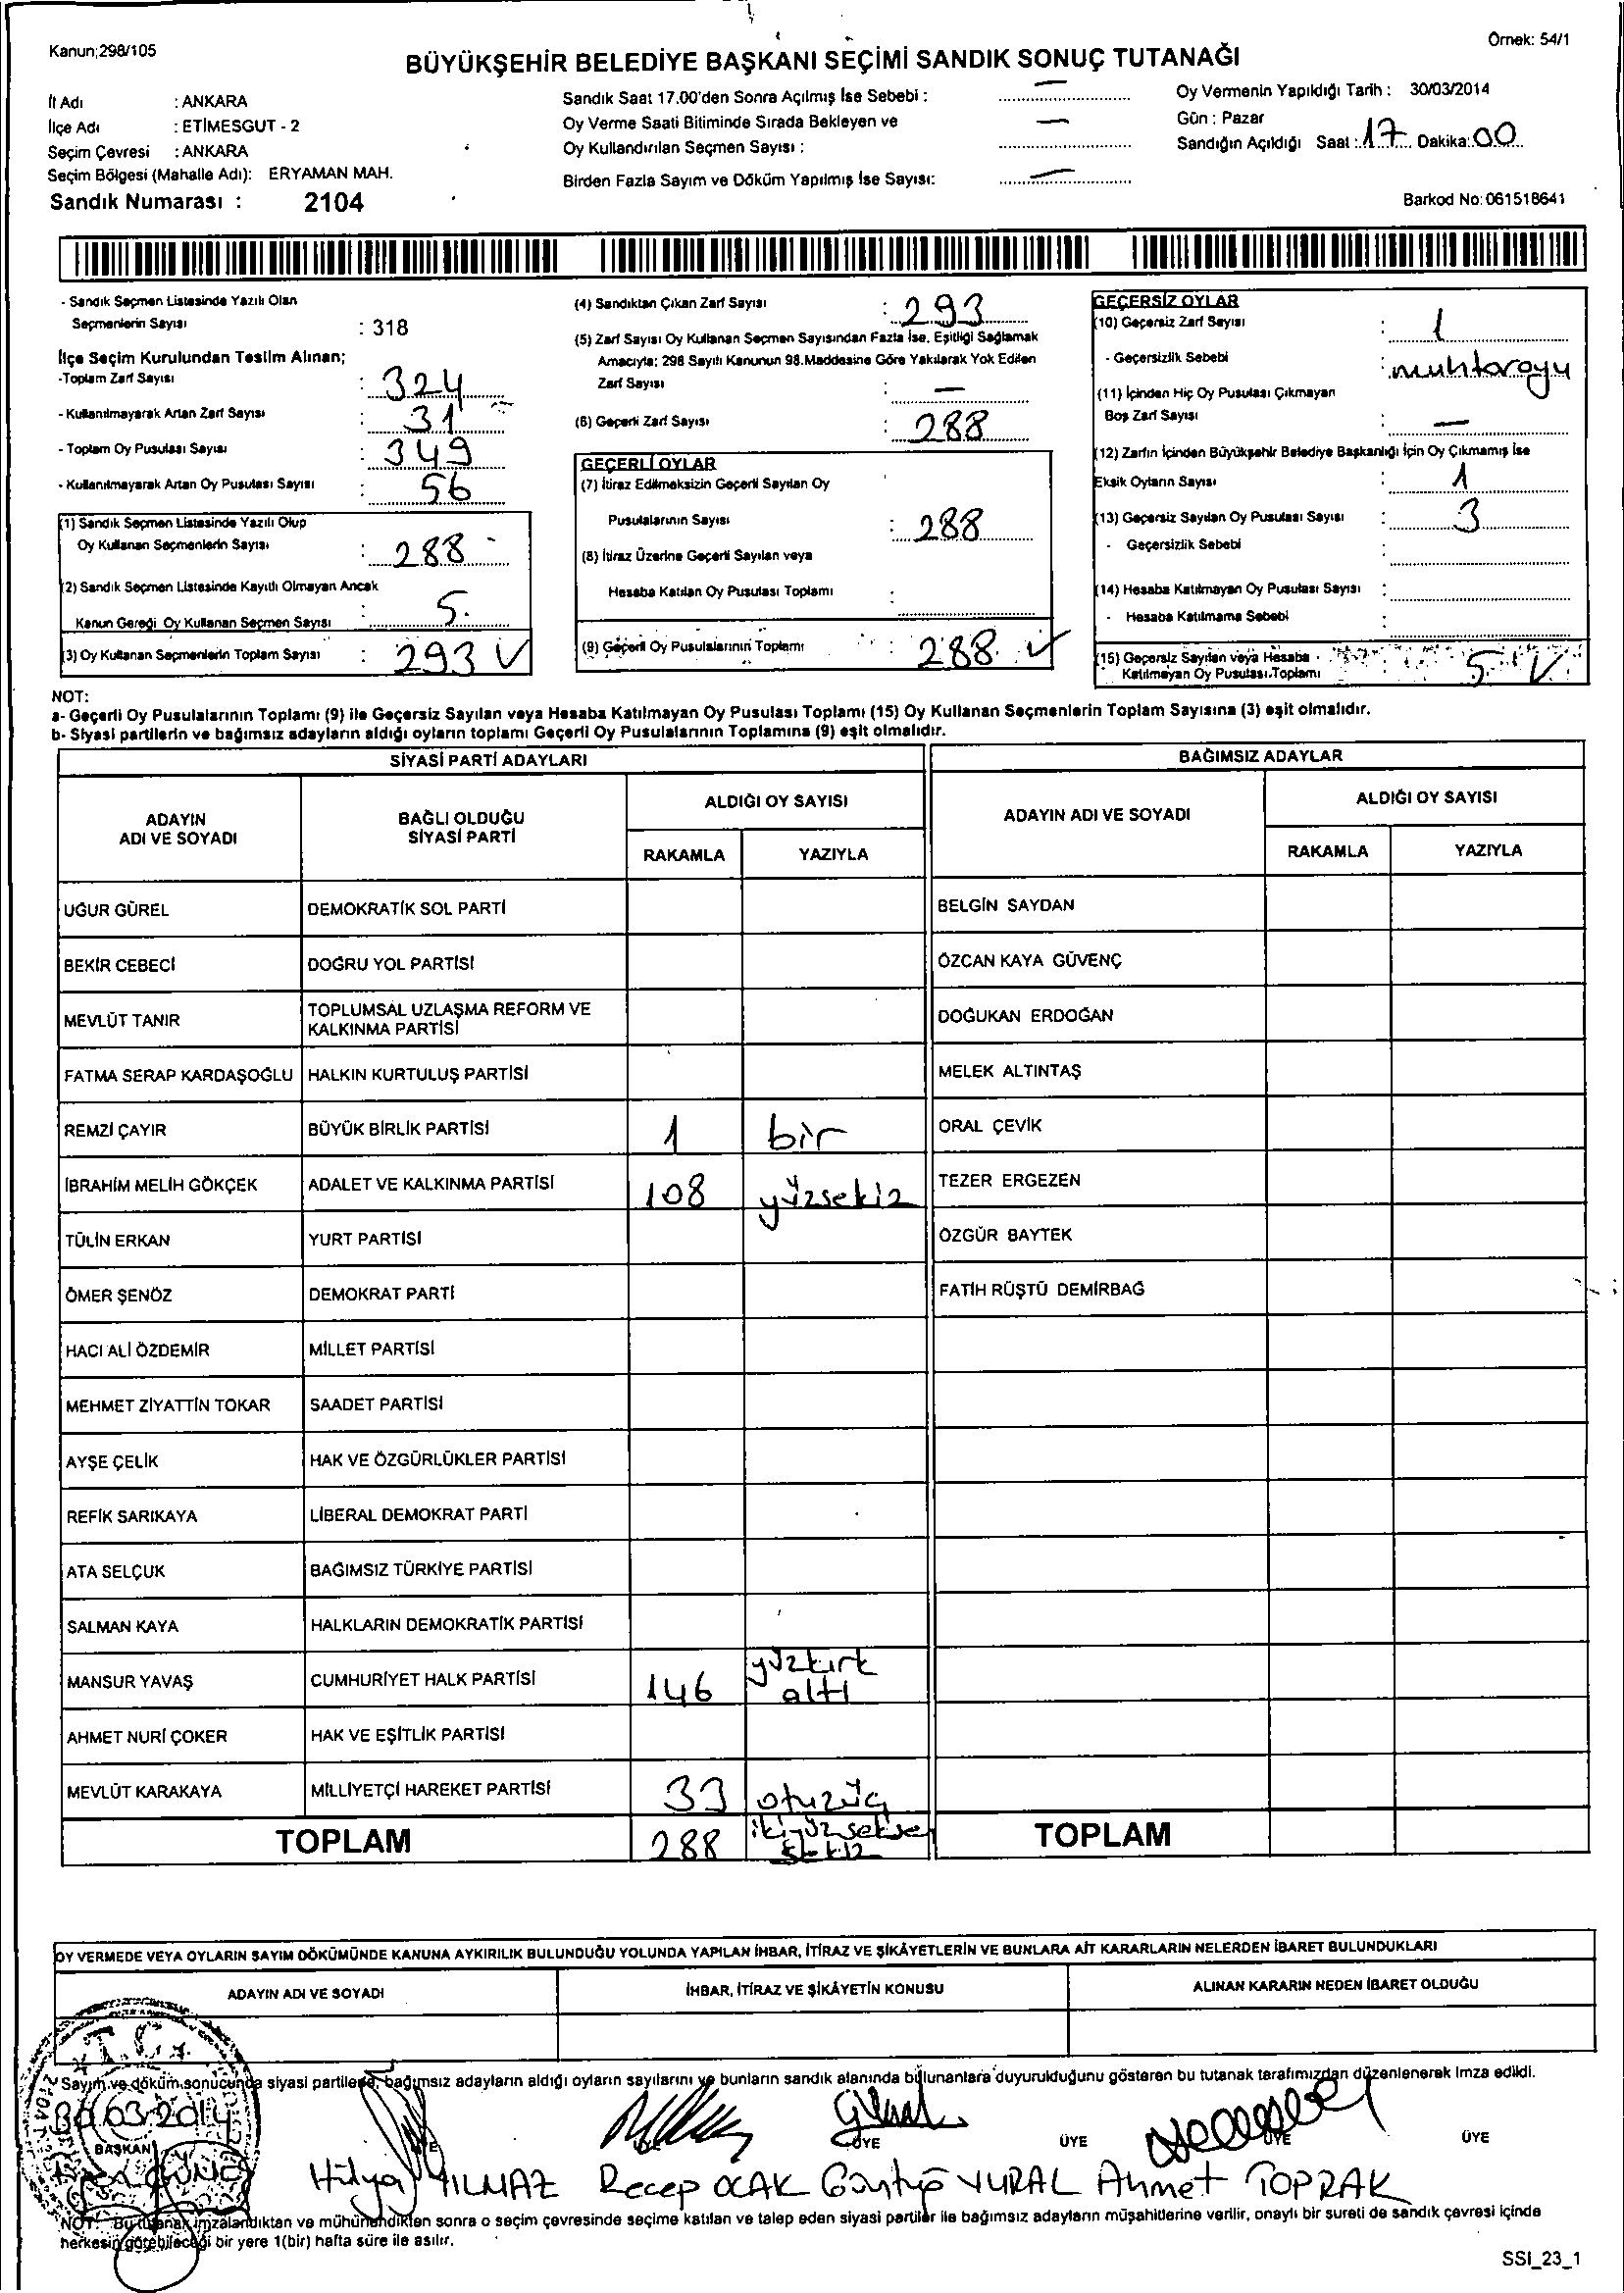 Kanun;298/105
Örnek: 54/1
BÜYÜKŞEHİR BELEDİYE BAŞKANI SEÇİMİ SANDIK SONUÇ TUTANAĞI
İl Adı : ANKARA
İlçe Adı : ETİMESGUT - 2
Seçim Çevresi : ANKARA
Seçim Bölgesi (Mahalle Adı): ERYAMAN MAH.
Sandık Numarası : 2104
Sandık Saat 17.00'den Sonra Açılmış İse Sebebi : —
Oy Verme Saati Bitiminde Sırada Bekleyen ve
Oy Kullandırılan Seçmen Sayısı : —
Birden Fazla Sayım ve Döküm Yapılmış İse Sayısı: —
Oy Vermenin Yapıldığı Tarih : 30/03/2014
Gün : Pazar
Sandığın Açıldığı Saat : 17 Dakika: 00
Barkod No: 061518641
- Sandık Seçmen Listesinde Yazılı Olan
Seçmenlerin Sayısı : 318
İlçe Seçim Kurulundan Teslim Alınan;
-Toplam Zarf Sayısı : 324
- Kullanılmayarak Artan Zarf Sayısı : 31
- Toplam Oy Pusulası Sayısı : 349
- Kullanılmayarak Artan Oy Pusulası Sayısı : 56
(1) Sandık Seçmen Listesinde Yazılı Olup
Oy Kullanan Seçmenlerin Sayısı : 288
(2) Sandık Seçmen Listesinde Kayıtlı Olmayan Ancak
Kanun Gereği Oy Kullanan Seçmen Sayısı : 5
(3) Oy Kullanan Seçmenlerin Toplam Sayısı : 293 ✓
(4) Sandıktan Çıkan Zarf Sayısı : 293
(5) Zarf Sayısı Oy Kullanan Seçmen Sayısından Fazla İse, Eşitliği Sağlamak
Amacıyla; 298 Sayılı Kanunun 98.Maddesine Göre Yakılarak Yok Edilen
Zarf Sayısı : —
(6) Geçerli Zarf Sayısı : 288
GEÇERLİ OYLAR
(7) İtiraz Edilmeksizin Geçerli Sayılan Oy
Pusulalarının Sayısı : 288
(8) İtiraz Üzerine Geçerli Sayılan veya
Hesaba Katılan Oy Pusulası Toplamı :
(9) Geçerli Oy Pusulalarının Toplamı : 288 ✓
GEÇERSİZ OYLAR
(10) Geçersiz Zarf Sayısı : 1
- Geçersizlik Sebebi : muhtaroyu
(11) İçinden Hiç Oy Pusulası Çıkmayan
Boş Zarf Sayısı : —
(12) Zarfın İçinden Büyükşehir Belediye Başkanlığı İçin Oy Çıkmamış İse
Eksik Oyların Sayısı : 1
(13) Geçersiz Sayılan Oy Pusulası Sayısı : 3
- Geçersizlik Sebebi :
(14) Hesaba Katılmayan Oy Pusulası Sayısı :
- Hesaba Katılmama Sebebi :
(15) Geçersiz Sayılan veya Hesaba
Katılmayan Oy Pusulası Toplamı : 5 ✓
NOT:
a- Geçerli Oy Pusulalarının Toplamı (9) ile Geçersiz Sayılan veya Hesaba Katılmayan Oy Pusulası Toplamı (15) Oy Kullanan Seçmenlerin Toplam Sayısına (3) eşit olmalıdır.
b- Siyasi partilerin ve bağımsız adayların aldığı oyların toplamı Geçerli Oy Pusulalarının Toplamına (9) eşit olmalıdır.
SİYASİ PARTİ ADAYLARI
ADAYIN ADI VE SOYADI BAĞLI OLDUĞU SİYASİ PARTİ ALDIĞI OY SAYISI
RAKAMLA YAZIYLA
UĞUR GÜREL DEMOKRATİK SOL PARTİ
BEKİR CEBECİ DOĞRU YOL PARTİSİ
MEVLÜT TANIR TOPLUMSAL UZLAŞMA REFORM VE KALKINMA PARTİSİ
FATMA SERAP KARDAŞOĞLU HALKIN KURTULUŞ PARTİSİ
REMZİ ÇAYIR BÜYÜK BİRLİK PARTİSİ 1 bir
İBRAHİM MELİH GÖKÇEK ADALET VE KALKINMA PARTİSİ 108 yüzsekiz
TÜLİN ERKAN YURT PARTİSİ
ÖMER ŞENÖZ DEMOKRAT PARTİ
HACI ALİ ÖZDEMİR MİLLET PARTİSİ
MEHMET ZİYATTİN TOKAR SAADET PARTİSİ
AYŞE ÇELİK HAK VE ÖZGÜRLÜKLER PARTİSİ
REFİK SARIKAYA LİBERAL DEMOKRAT PARTİ
ATA SELÇUK BAĞIMSIZ TÜRKİYE PARTİSİ
SALMAN KAYA HALKLARIN DEMOKRATİK PARTİSİ
MANSUR YAVAŞ CUMHURİYET HALK PARTİSİ 146 yüzkırk altı
AHMET NURİ ÇOKER HAK VE EŞİTLİK PARTİSİ
MEVLÜT KARAKAYA MİLLİYETÇİ HAREKET PARTİSİ 33 otuzüç
TOPLAM 288 ikiyüzseksen sekiz
BAĞIMSIZ ADAYLAR
ADAYIN ADI VE SOYADI ALDIĞI OY SAYISI
RAKAMLA YAZIYLA
BELGİN SAYDAN
ÖZCAN KAYA GÜVENÇ
DOĞUKAN ERDOĞAN
MELEK ALTINTAŞ
ORAL ÇEVİK
TEZER ERGEZEN
ÖZGÜR BAYTEK
FATİH RÜŞTÜ DEMİRBAĞ
TOPLAM
OY VERMEDE VEYA OYLARIN SAYIM DÖKÜMÜNDE KANUNA AYKIRILIK BULUNDUĞU YOLUNDA YAPILAN İHBAR, İTİRAZ VE ŞİKÂYETLERİN VE BUNLARA AİT KARARLARIN NELERDEN İBARET BULUNDUKLARI
ADAYIN ADI VE SOYADI İHBAR, İTİRAZ VE ŞİKÂYETİN KONUSU ALINAN KARARIN NEDEN İBARET OLDUĞU
T.C.
Sayım ve döküm sonucunda siyasi partilerin, bağımsız adayların aldığı oyların sayılarını ve bunların sandık alanında bulunanlara duyurulduğunu gösteren bu tutanak tarafımızdan düzenlenerek imza edildi.
30.03.2014
BAŞKAN ÜYE ÜYE ÜYE ÜYE ÜYE
Hülya YILMAZ Recep OCAK VURAL Ahmet TOPRAK
NOT: Bu tutanak imzalandıktan ve mühürlendikten sonra o seçim çevresinde seçime katılan ve talep eden siyasi partiler ile bağımsız adayların müşahitlerine verilir, onaylı bir sureti de sandık çevresi içinde
herkesin görebileceği bir yere 1(bir) hafta süre ile asılır.
SSI_23_1